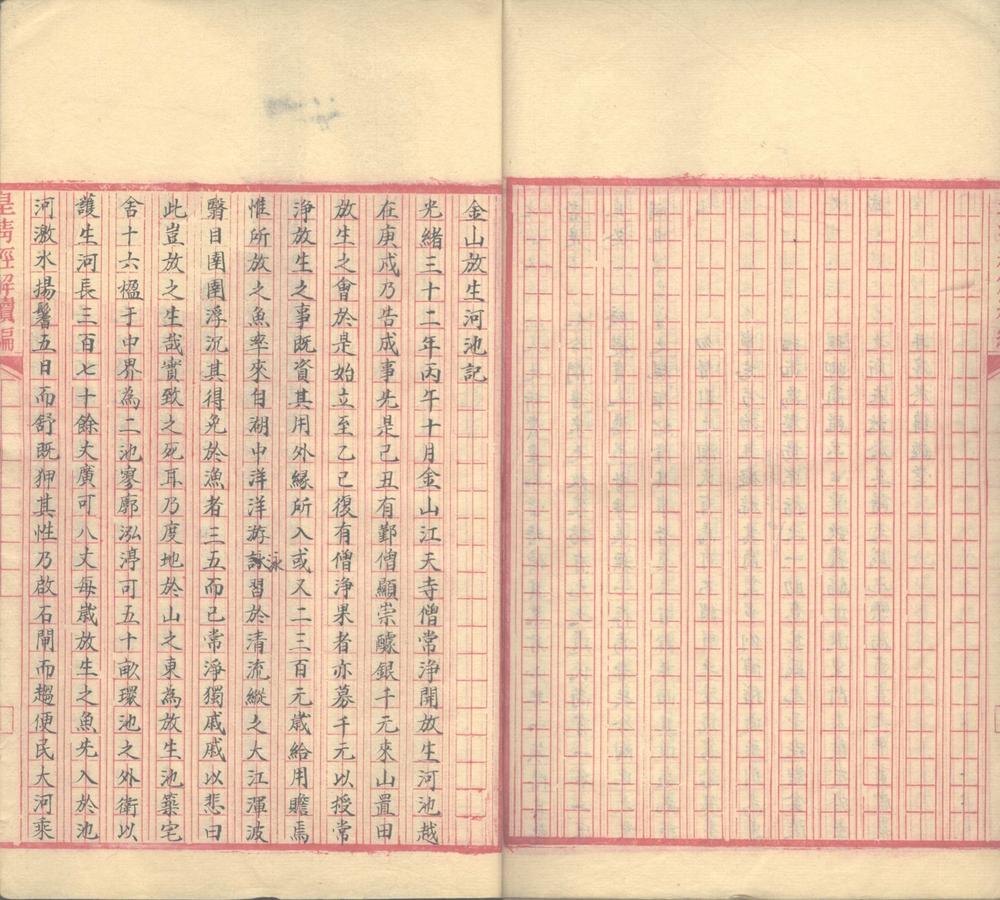 金山放生河池記
光緒三十二年丙午十月金山江天寺僧常浄開放生河池越
在庚戌乃告成事先是己丑有鄞僧顯崇醵銀千元來山置田
放生之會於是始立至乙巳復有僧浄果者亦募千元以授常
浄放生之事既資其用外緣所入或又二三百元歲給用贍焉
惟所放之魚率來自湖中洋洋游詠泳習於清流縱之大江渾波
翳目圉圉浮沉其得免於漁者三五而已常淨獨戚戚以悲曰
此豈放之生哉實致之死耳乃度地於山之東為放生池築宅
舍十六楹于中界為二池寥廓泓渟可五十畝環池之外衛以
護生河長三百七十餘丈廣可八丈每歲放生之魚先入於池
河激水揚鬐五日而舒既狎其性乃啟石閘而趨便民大河乘
皇清經解續編